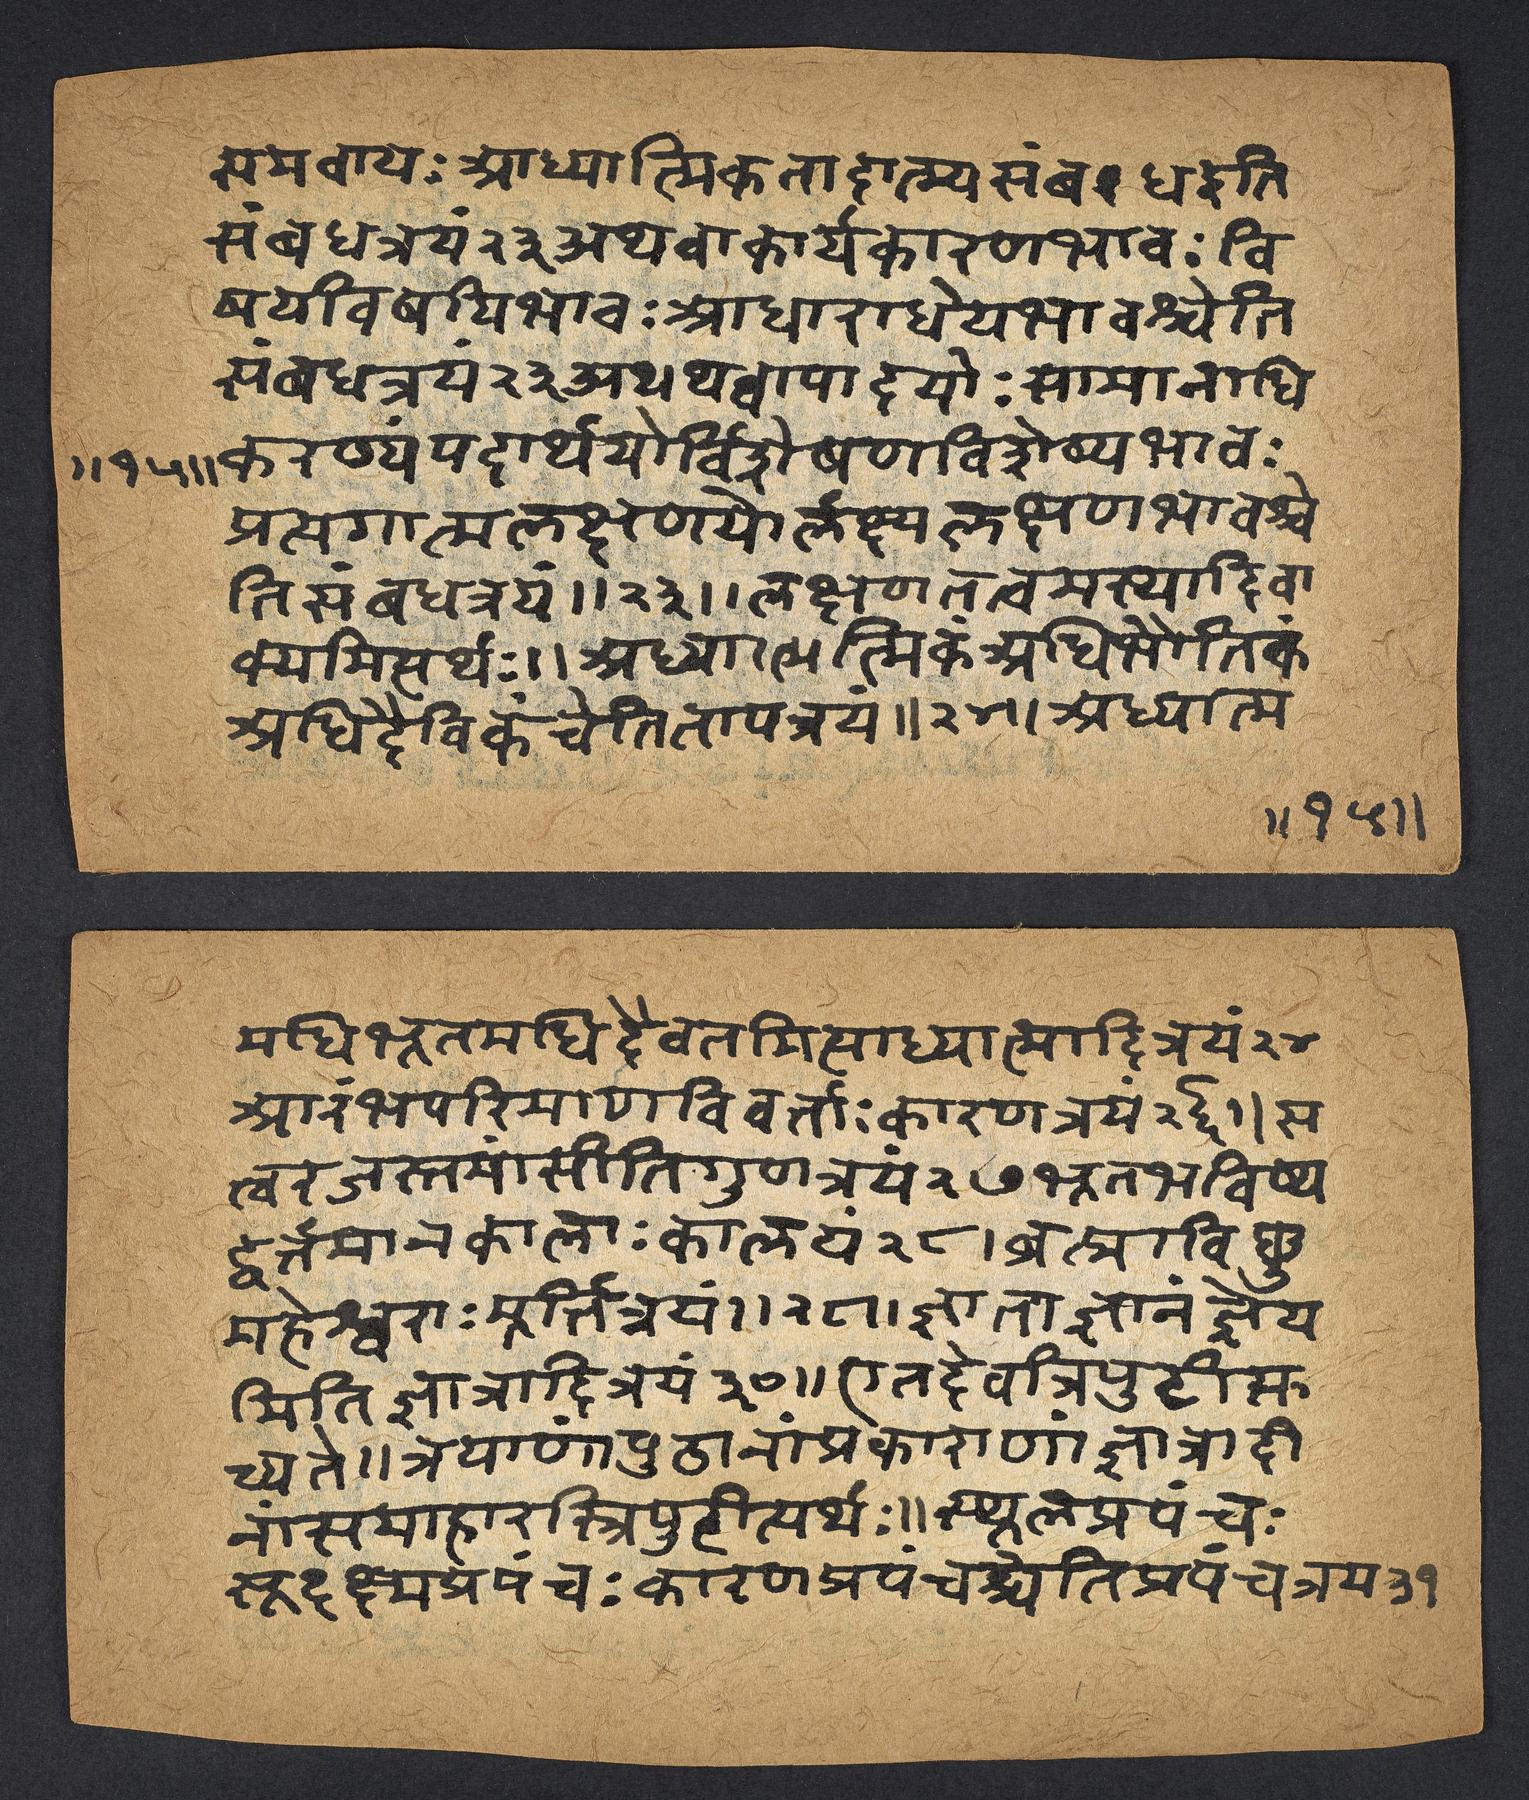 समवायः आध्यात्मिकतादात्म्यसंबंधइति
संबधत्रयं २३ अथवाकार्यकारणभावः वि
षयीविषयिभावः आधाराधेयभावश्चेति
संबधत्रयं २३ अथथवापादयोः सामानाधि
॥१५॥ करण्यंपदार्थयोर्विशेषणविशेष्यभावः
प्रत्यगात्मलक्षणयोर्लक्ष्यलक्षणभावश्चे
तिसंबधत्रयं ॥२३॥ लक्षणतत्वमस्यादिवा
क्यमित्यर्थः ॥ अध्यात्मात्मिकं अधिभौतिकं
अधिदैविकंचेतितापत्रयं ॥२४। अध्यात्म
॥१५॥
मधिभूतमधिदैवतमित्याध्यात्मादित्रयं २४
आरंभपरिमाणविवर्ताः कारणत्रयं २६॥ स
त्वरजस्तमांसीतिगुणत्रयं २७ भूतभविष्य
द्वर्तमानकालाः कालयं २८। ब्रह्माविष्णु
महेश्वराः मूर्त्तित्रयं ॥२८॥ ज्ञाताज्ञानंज्ञेय
मिति ज्ञात्रादित्रयं ३०॥ एतदेवत्रिपुटीमु
च्यते ॥ त्रयाणांपुठानांप्रकाराणांज्ञात्रादी
नांसमाहारस्त्रिपुटीत्यर्थः ॥ स्थूलप्रपंचः
सूक्ष्मप्रपंचः कारणप्रपंचश्चेतिप्रपंचत्रय ३१